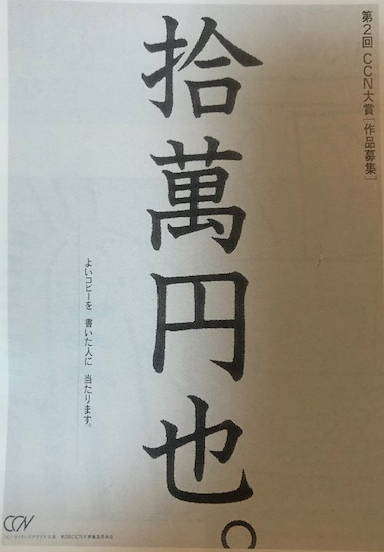 第2回 CCN大賞[作品募集]
拾萬円也。
よいコピーを 書いた人に 当たります。
CCN